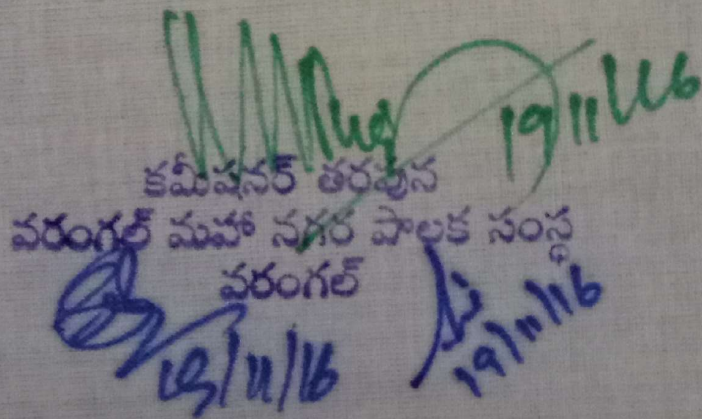 19/11/16
కమీషనర్ తరపున
వరంగల్ మహా నగర పాలక సంస్థ
వరంగల్
19/11/16
19/11/16